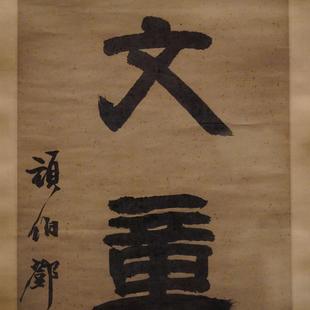 文童
頑伯鄧